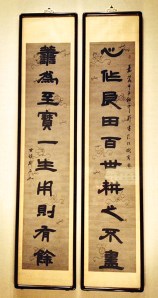 心作良田百世耕之不盡
善為至寶一生用則有餘